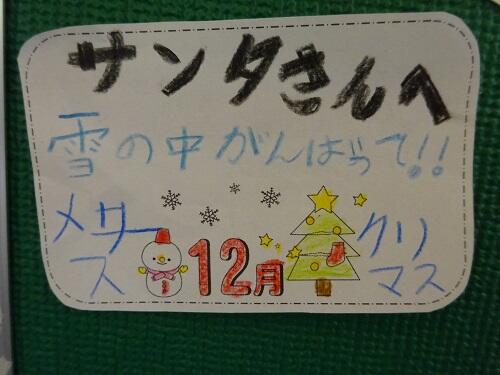 サンタさんへ
雪の中がんばって!!
メサー
ス
12月
クリ
マス